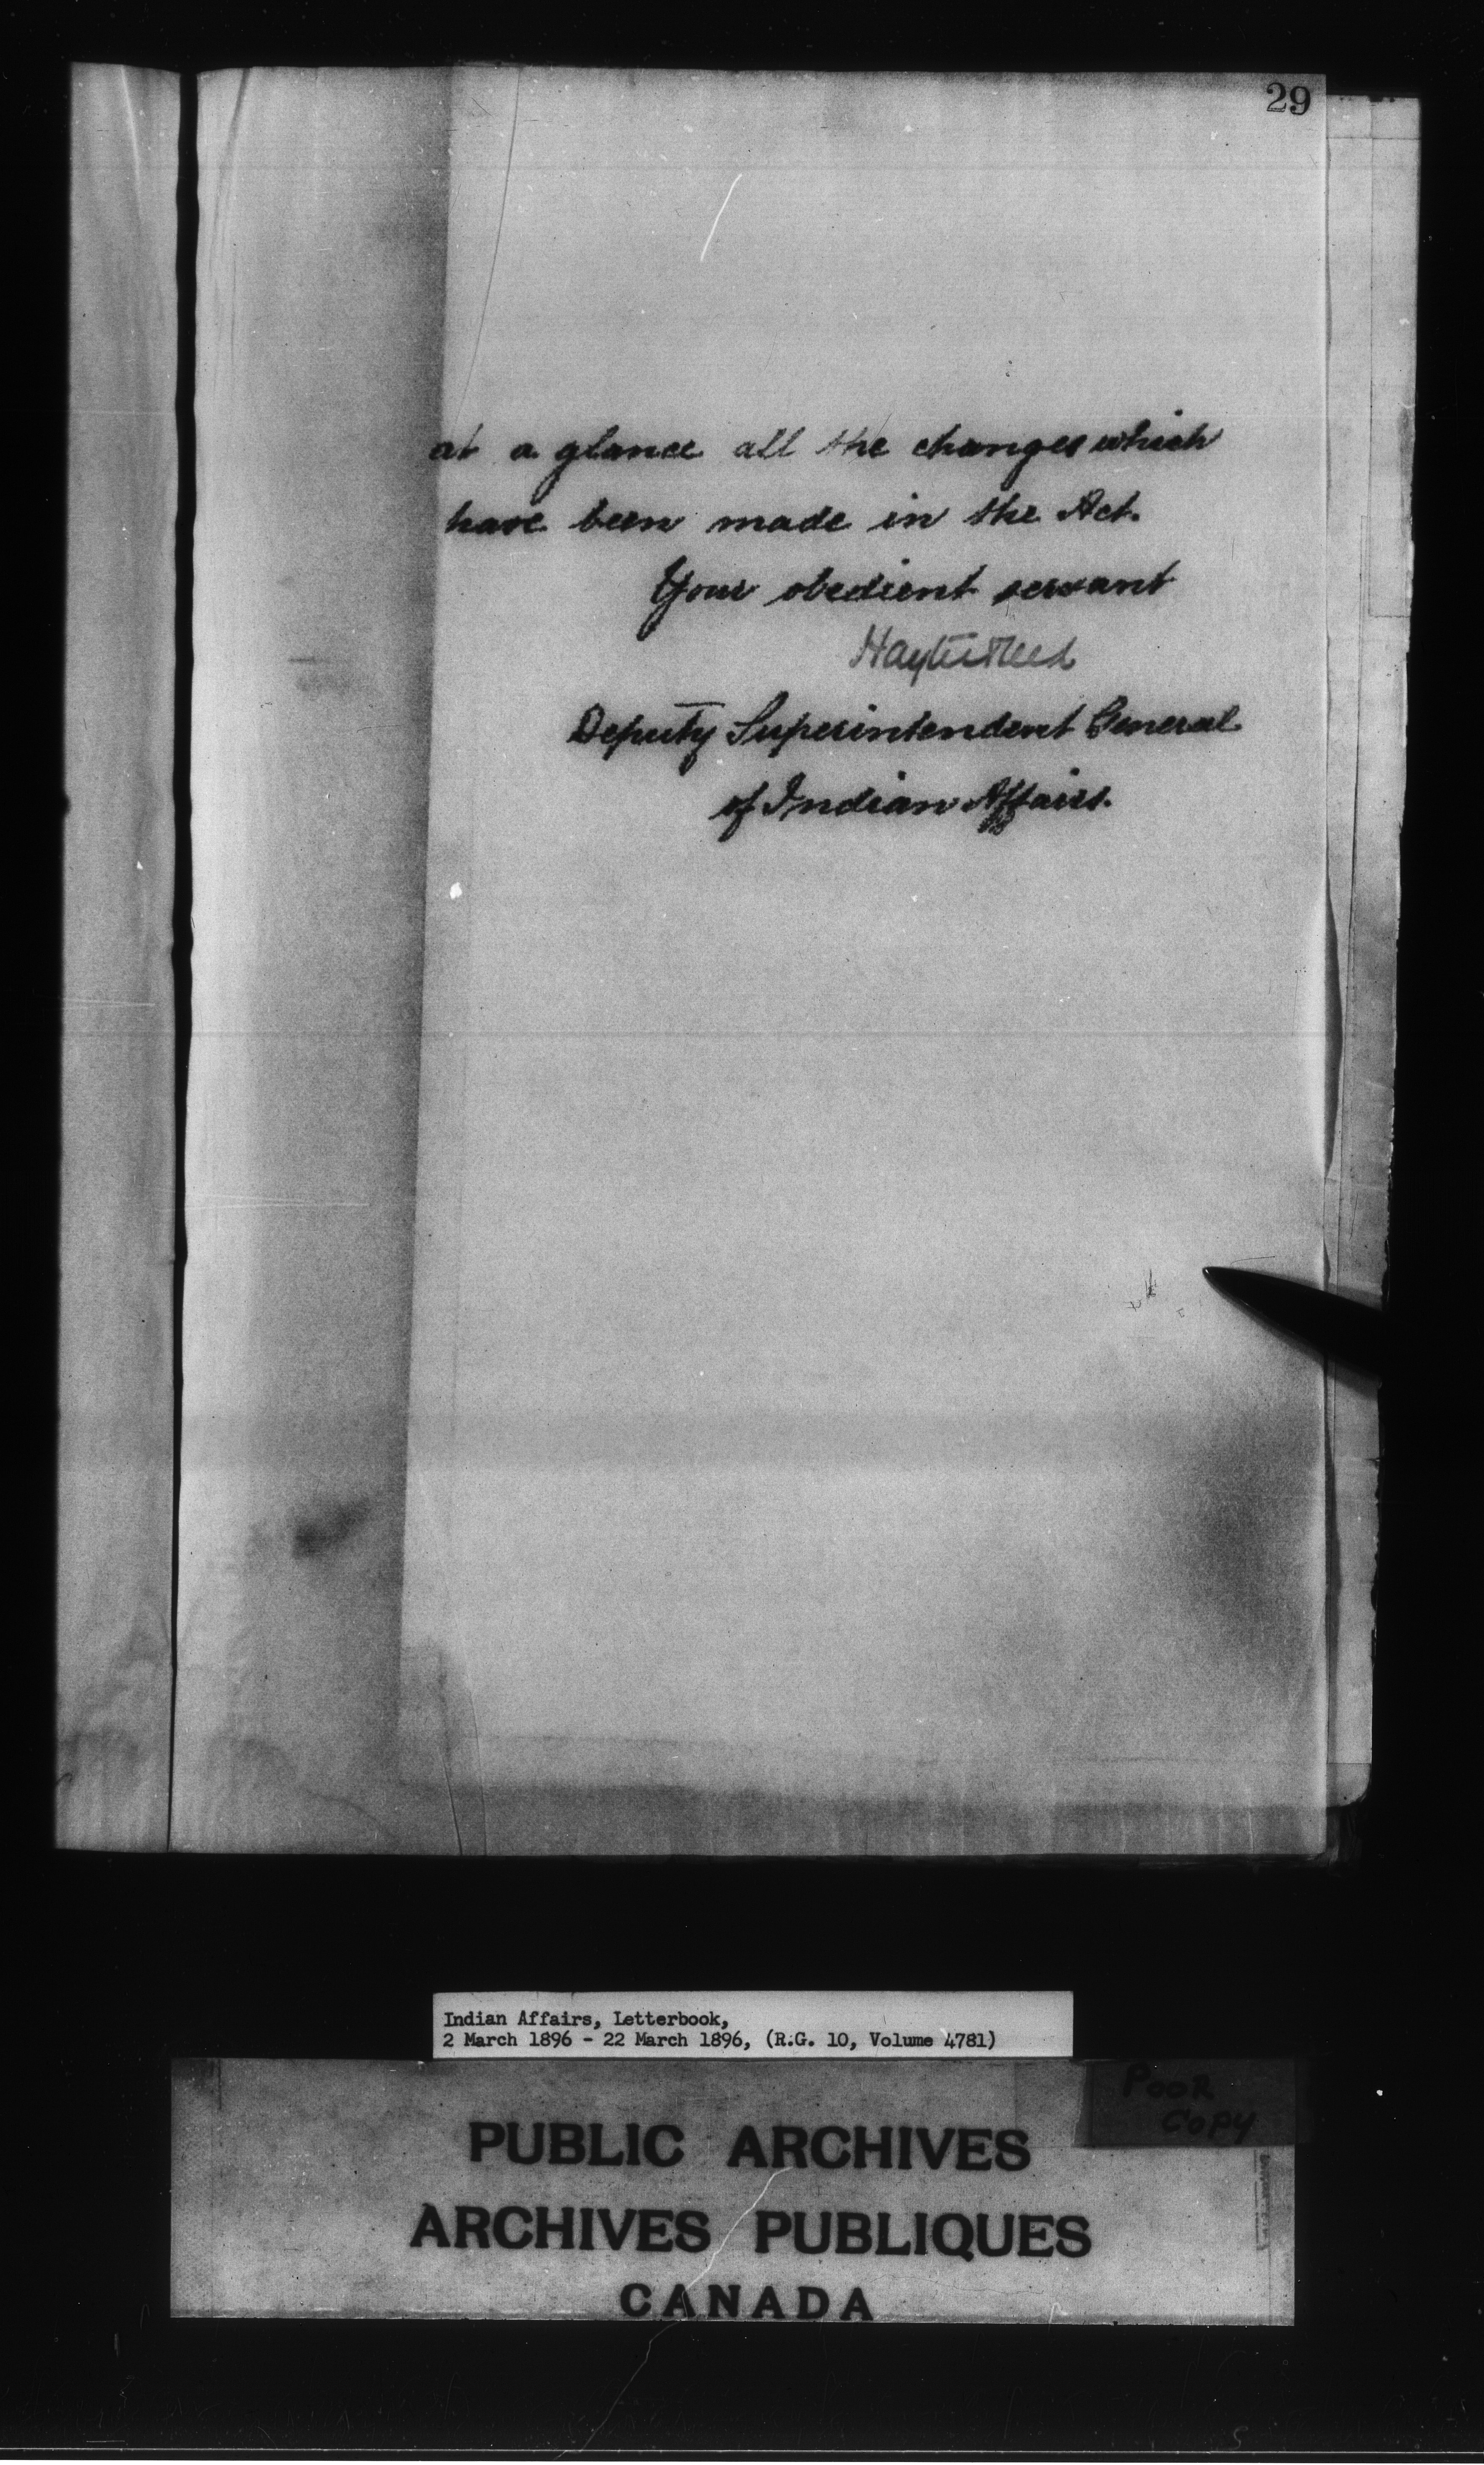 29
at a glance all the changes which
have been made in the Act.
Your obedient servant
Hayter Reed
Deputy Superintendent General
of Indian Affairs.
Indian Affairs, Letterbook,
2 March 1896 - 22 March 1896, (R.G. 10, Volume 4781)
POOR
COPY
PUBLIC ARCHIVES
ARCHIVES PUBLIQUES
CANADA